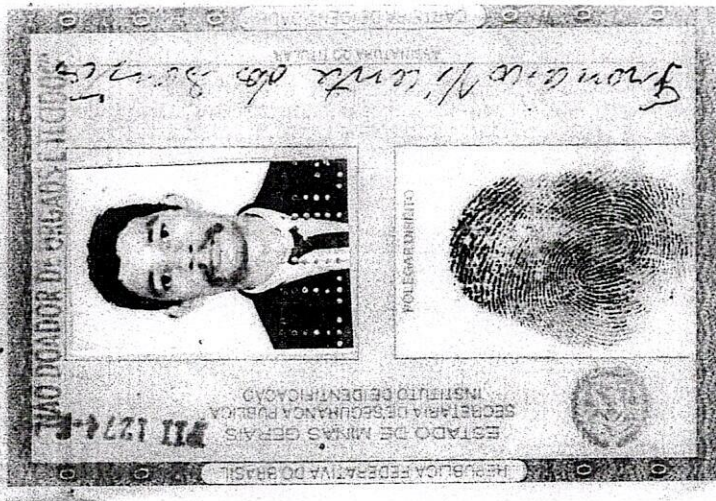 REPÚBLICA FEDERATIVA DO BRASIL
ESTADO DE MINAS GERAIS
SECRETARIA DE SEGURANÇA PÚBLICA
INSTITUTO DE IDENTIFICAÇÃO
PII 1274-
POLEGAR DIREITO
NÃO DOADOR DE ÓRGÃOS E TECIDOS
ASSINATURA DO TITULAR
CARTEIRA DE IDENTIDADE